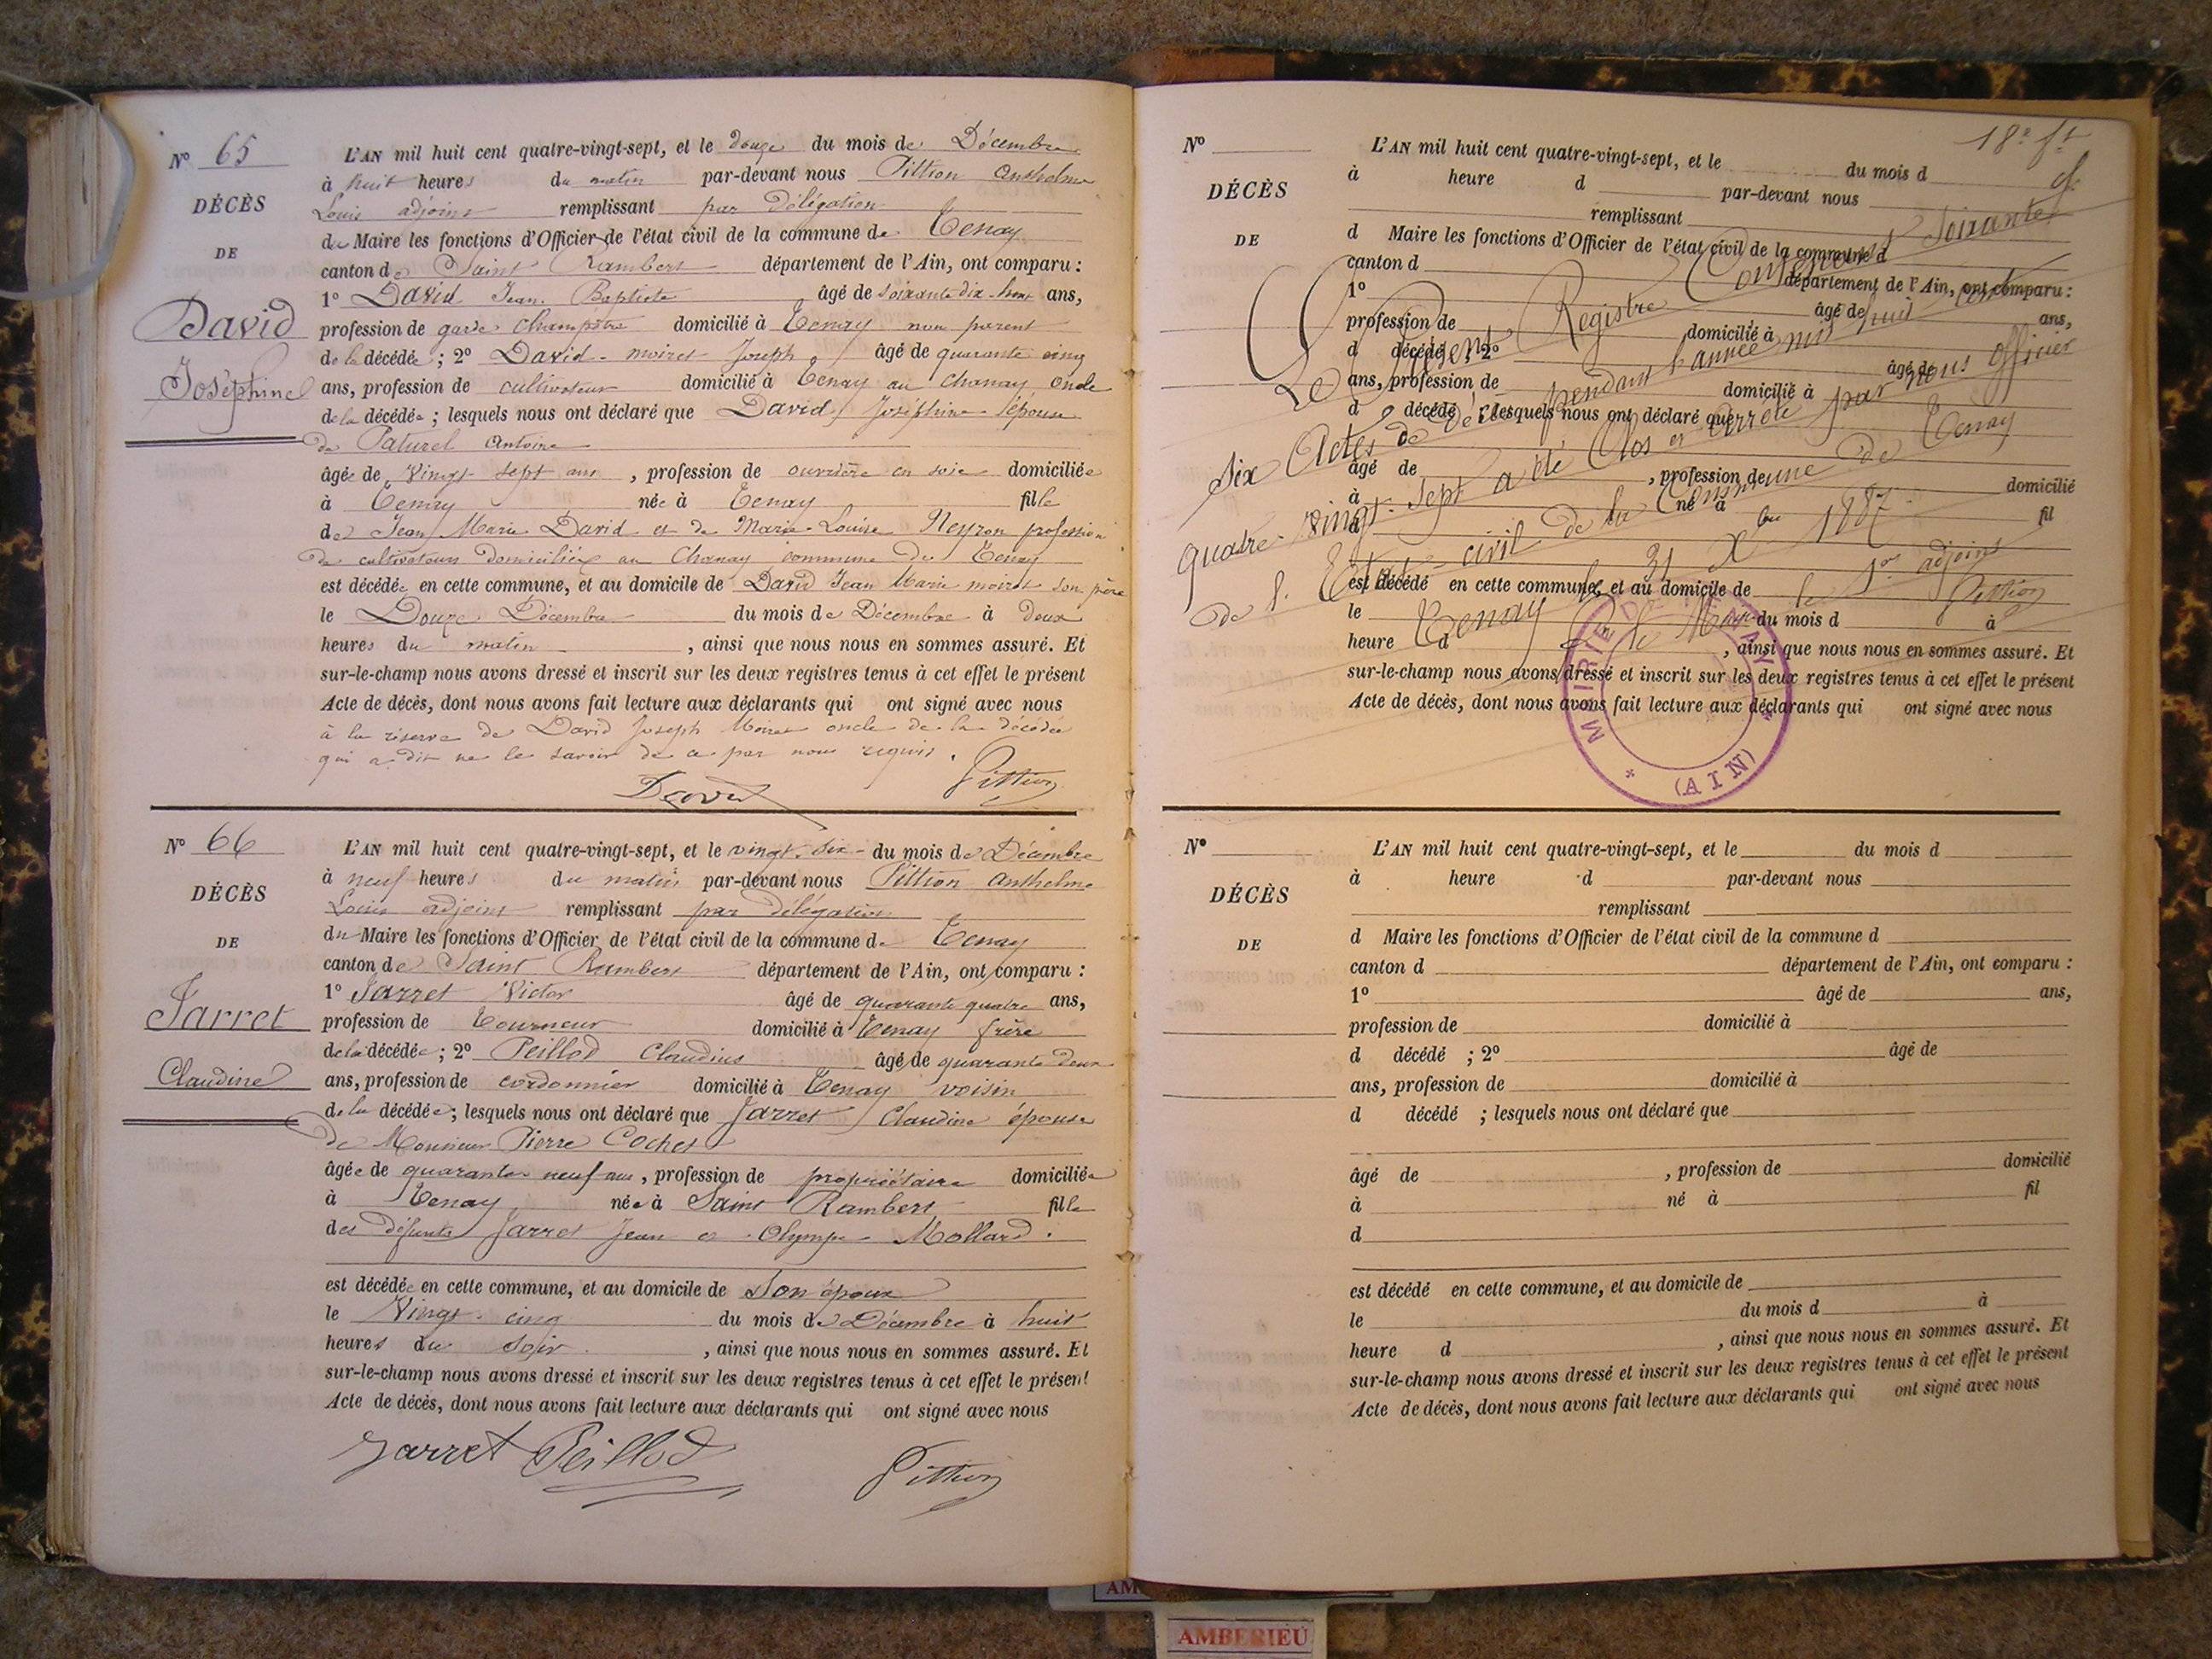 N° 65
DÉCÈS
DE
David
Joséphine
L'AN mil huit cent quatre-vingt-sept, et le douze du mois de Décembre
à huit heures du matin par-devant nous Pittion Anthelme
Louis adjoint remplissant par Délégation
du Maire les fonctions d'Officier de l'état civil de la commune de Tenay
canton de Saint Rambert département de l'Ain, ont comparu :
1° David Jean Baptiste âgé de soixante dix-huit ans,
profession de garde champêtre domicilié à Tenay non parent
de la décédée ; 2° David-moiret Joseph âgé de quarante cinq
ans, profession de cultivateur domicilié à Tenay au Chanay oncle
de la décédée ; lesquels nous ont déclaré que David Joséphine épouse
de Paturel Antoine
âgée de vingt sept ans , profession de ouvrière en soie domiciliée
à Tenay née à Tenay fille
de Jean Marie David et de Marie-Louise Neyron profession
de cultivateurs domiciliés au Chanay commune de Tenay
est décédée en cette commune, et au domicile de David Jean Marie moiret son père
le Douze Décembre du mois de Décembre à deux
heures du matin , ainsi que nous nous en sommes assuré. Et
sur-le-champ nous avons dressé et inscrit sur les deux registres tenus à cet effet le présent
Acte de décès, dont nous avons fait lecture aux déclarants qui ont signé avec nous
à la réserve de David Joseph Moiret oncle de la décédée
qui a dit ne le savoir de ce par nous requis.
David Pittion
N° 66
DÉCÈS
DE
Jarret
Claudine
L'AN mil huit cent quatre-vingt-sept, et le vingt-six du mois de Décembre
à neuf heures du matin par-devant nous Pittion Anthelme
Louis adjoint remplissant par délégation
du Maire les fonctions d'Officier de l'état civil de la commune de Tenay
canton de Saint Rambert département de l'Ain, ont comparu :
1° Jarret Victor âgé de quarante quatre ans,
profession de Tourneur domicilié à Tenay frère
de la décédée ; 2° Peillod Claudius âgé de quarante deux
ans, profession de cordonnier domicilié à Tenay voisin
de la décédée ; lesquels nous ont déclaré que Jarret Claudine épouse
de Monsieur Pierre Cochet
âgée de quarante neuf ans , profession de propriétaire domiciliée
à Tenay née à Saint Rambert fille
des défunts Jarret Jean et Olympe Mollard.
est décédée en cette commune, et au domicile de Son époux
le Vingt-cinq du mois de Décembre à huit
heures du soir , ainsi que nous nous en sommes assuré. Et
sur-le-champ nous avons dressé et inscrit sur les deux registres tenus à cet effet le présent
Acte de décès, dont nous avons fait lecture aux déclarants qui ont signé avec nous
Jarret Peillod Pittion
18e ft
N°
DÉCÈS
DE
L'AN mil huit cent quatre-vingt-sept, et le du mois d
à heure d par-devant nous
remplissant
d Maire les fonctions d'Officier de l'état civil de la commune d
canton d département de l'Ain, ont comparu :
1° âgé de ans,
profession de domicilié à
d décédé ; 2° âgé de
ans, profession de domicilié à
d décédé ; lesquels nous ont déclaré que
âgé de , profession de domicilié
à né à fil
d
est décédé en cette commune, et au domicile de
le du mois d à
heure d , ainsi que nous nous en sommes assuré. Et
sur-le-champ nous avons dressé et inscrit sur les deux registres tenus à cet effet le présent
Acte de décès, dont nous avons fait lecture aux déclarants qui ont signé avec nous
Le Présent Registre Contenant Soixante
Six Actes de Décès pendant l'année mil huit cent
quatre-vingt-sept a été Clos et arrêté par nous Officier
de l'Etat-civil de la Commune de Tenay
Tenay le 31 Xbre 1887
P. le Maire le 1er adjoint
Pittion
MAIRIE DE TENAY
* (AIN) *
N°
DÉCÈS
DE
L'AN mil huit cent quatre-vingt-sept, et le du mois d
à heure d par-devant nous
remplissant
d Maire les fonctions d'Officier de l'état civil de la commune d
canton d département de l'Ain, ont comparu :
1° âgé de ans,
profession de domicilié à
d décédé ; 2° âgé de
ans, profession de domicilié à
d décédé ; lesquels nous ont déclaré que
âgé de , profession de domicilié
à né à fil
d
est décédé en cette commune, et au domicile de
le du mois d à
heure d , ainsi que nous nous en sommes assuré. Et
sur-le-champ nous avons dressé et inscrit sur les deux registres tenus à cet effet le présent
Acte de décès, dont nous avons fait lecture aux déclarants qui ont signé avec nous
AM
AMBERIEU